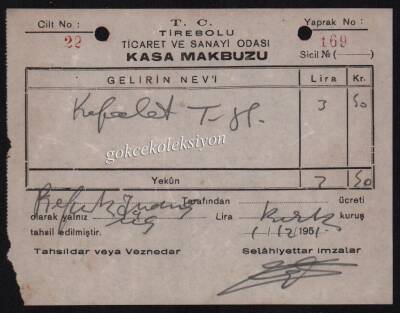 Cilt No : T. C. Yaprak No :
22 TİREBOLU 169
TİCARET VE SANAYİ ODASI Sicil No (—)
KASA MAKBUZU
GELİRİN NEV'İ Lira Kr.
3 50
gokcekoleksiyon
Yekûn 3 50
Tarafından ücreti
olarak yalnız üç Lira kuruş
tahsil edilmiştir. 1/12/1951
Tahsildar veya Veznedar Selâhiyettar imzalar